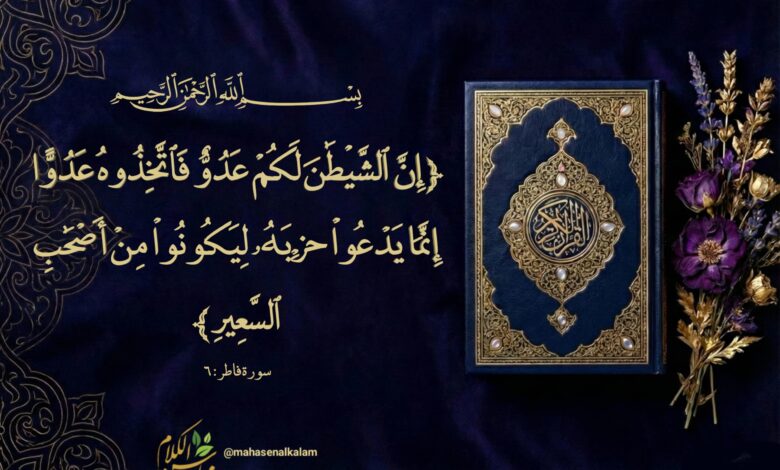 بِسْمِ ٱللَّهِ ٱلرَّحْمَٰنِ ٱلرَّحِيمِ
﴿إِنَّ ٱلشَّيْطَٰنَ لَكُمْ عَدُوٌّ فَٱتَّخِذُوهُ عَدُوًّا
إِنَّمَا يَدْعُوا۟ حِزْبَهُۥ لِيَكُونُوا۟ مِنْ أَصْحَٰبِ
ٱلسَّعِيرِ﴾
سورة فاطر: ٦
القرآن الكريم
الكلام
@mahasenalkalam